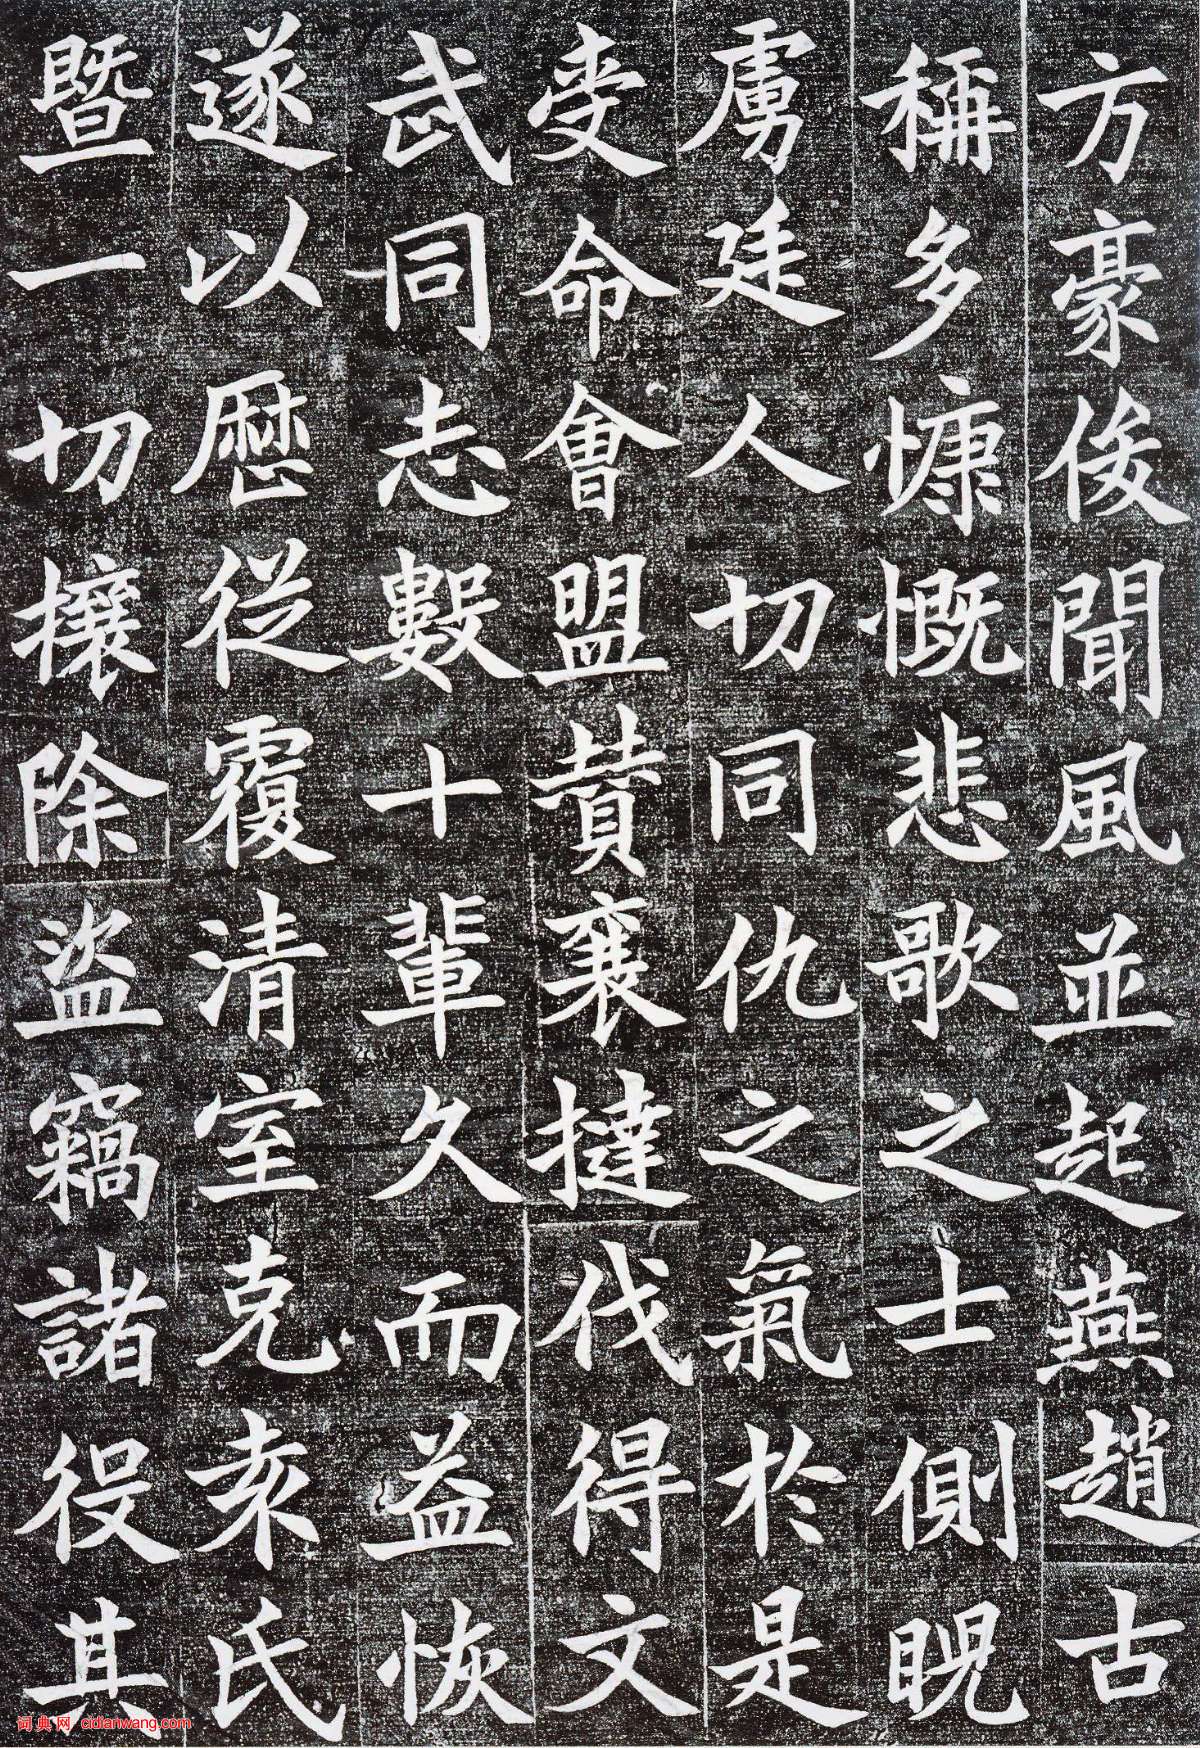 方豪俊聞風並起燕趙古
稱多慷慨悲歌之士側睨
虜廷人切同仇之氣於是
受命會盟贊襄撻伐得文
武同志數十輩久而益恢
遂以歷從覆清室克袁氏
暨一切攘除盜竊諸役其
词典网 cidianwang.com